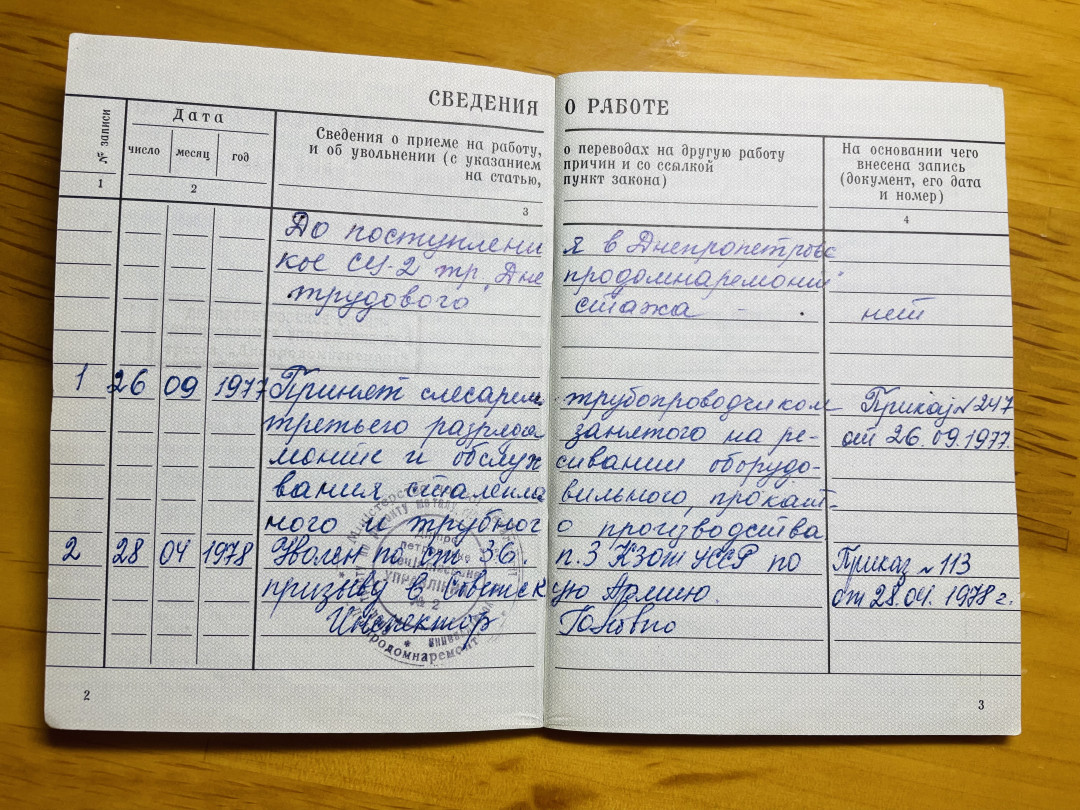 СВЕДЕНИЯ О РАБОТЕ
№ записи
Дата
число месяц год
Сведения о приеме на работу, о переводах на другую работу
и об увольнении (с указанием причин и со ссылкой
на статью, пункт закона)
На основании чего
внесена запись
(документ, его дата
и номер)
1 2 3 4
До поступления в Днепропетровс
кое СУ-2 тр. "Дне продомнаремонт"
трудового стажа - нет
1 26 09 1977 Принят слесарем трубопроводчиком Приказ № 247
третьего разряда занятого на ре- от 26.09.1977.
монте и обслуживании оборудо-
вания сталеплавильного, прокат-
ного и трубного производства
2 28 04 1978 Уволен по ст. 36. п. 3 КЗот УССР по Приказ № 113
призыву в Советскую Армию. от 28.04. 1978 г.
Инспектор
УПРАВЛІННЯ
№ 2
продомнаремонт
2
3